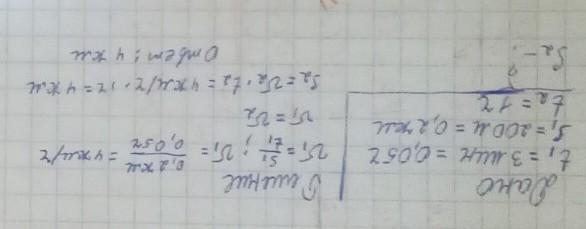 Дано
t₁ = 3 мин = 0,05 ч
S₁ = 200 м = 0,2 км
t₂ = 1 ч
S₂ - ?
Решение
v₁ = S₁/t₁ ; v₁ = 0,2 км/0,05 ч = 4 км/ч
v₁ = v₂
S₂ = v₂ · t₂ = 4 км/ч · 1ч = 4 км
Ответ: 4 км